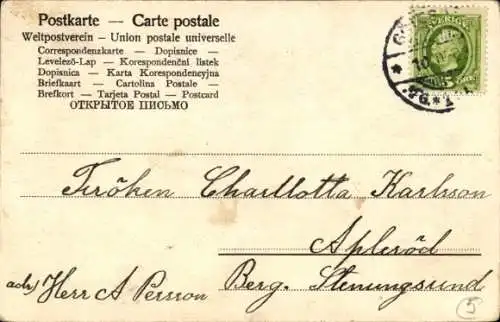 Postkarte — Carte postale
Weltpostverein - Union postale universelle
Correspondenzkarte — Dopisnice —
Levelező-Lap — Korespondenční listek
Dopisnica — Karta Korespondencyjna
Briefkaart — Cartolina Postale —
Brefkort — Tarjeta Postal — Postcard
ОТКРЫТОЕ ПИСЬМО
SVERIGE
Fröken Charllotta Karlsson
Apleröd
Berg. Stenungsund
adr/ Herr A Persson
5